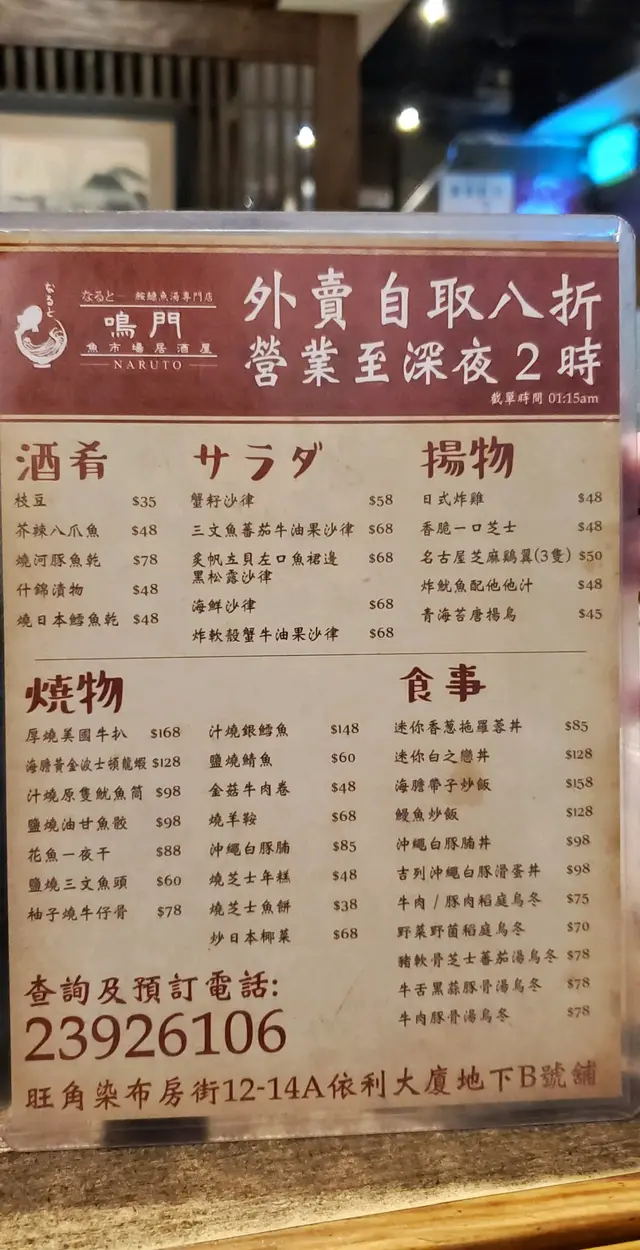 なると
なると 鮟鱇魚湯專門店
鳴門
魚市場居酒屋
NARUTO
外賣自取八折
營業至深夜2時
截單時間 01:15am
酒肴
枝豆 $35
芥辣八爪魚 $48
燒河豚魚乾 $78
什錦漬物 $48
燒日本鱈魚乾 $48
サラダ
蟹籽沙律 $58
三文魚蕃茄牛油果沙律 $68
炙帆立貝左口魚裙邊 $68
黑松露沙律
海鮮沙律 $68
炸軟殼蟹牛油果沙律 $68
揚物
日式炸雞 $48
香脆一口芝士 $48
名古屋芝麻鷄翼(3隻) $50
炸魷魚配他他汁 $48
青海苔唐揚鳥 $45
燒物
厚燒美國牛扒 $168
海膽黃金波士頓龍蝦 $128
汁燒原隻魷魚筒 $98
鹽燒油甘魚骹 $98
花魚一夜干 $88
鹽燒三文魚頭 $60
柚子燒牛仔骨 $78
汁燒銀鱈魚 $148
鹽燒鯖魚 $60
金菇牛肉卷 $48
燒羊鞍 $68
沖繩白豚腩 $85
燒芝士年糕 $48
燒芝士魚餅 $38
炒日本椰菜 $68
食事
迷你香蔥拖羅蓉丼 $85
迷你白之戀丼 $128
海膽帶子炒飯 $158
鰻魚炒飯 $128
沖繩白豚腩丼 $98
吉列沖繩白豚滑蛋丼 $98
牛肉 / 豚肉稻庭烏冬 $75
野菜野菌稻庭烏冬 $70
豬軟骨芝士蕃茄湯烏冬 $78
牛舌黑蒜豚骨湯烏冬 $78
牛肉豚骨湯烏冬 $78
查詢及預訂電話:
23926106
旺角染布房街12-14A依利大廈地下B號舖